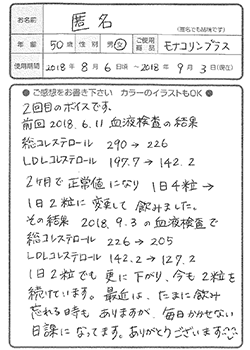 お名前 匿名
(匿名でも結構です)
年齢 50歳 性別 男・女 ご使用商品 モナコリンプラス
使用期間 2018年8月6日頃〜2018年9月3日(現在)
● ご感想をお書き下さい カラーのイラストもOK ●
2回目のボイスです。
前回2018.6.11血液検査の結果
総コレステロール 290→226
LDLコレステロール 197.7→142.2
2ヶ月で正常値になり1日4粒→
1日2粒に変更して飲みました。
その結果 2018.9.3の血液検査で
総コレステロール 226→205
LDLコレステロール 142.2→127.2
1日2粒でも更に下がり、今も2粒を
続けています。最近は、たまに飲み
忘れる時もありますが、毎日かかせない
日課になってます。ありがとうございます